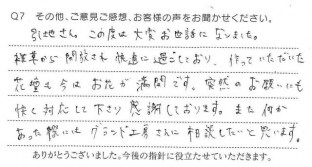 Q7 その他、ご意見ご感想、お客様の声をお聞かせください。
引地さん この度は大変お世話になりました。
雑草から開放され快適に過ごしており、作っていただいた
花壇も今はお花が満開です。突然のお願いにも
快く対応して下さり感謝しております。また何か
あった際にはグランド工房さんに相談したいと思います。
ありがとうございました。今後の指針に役立たせていただきます。